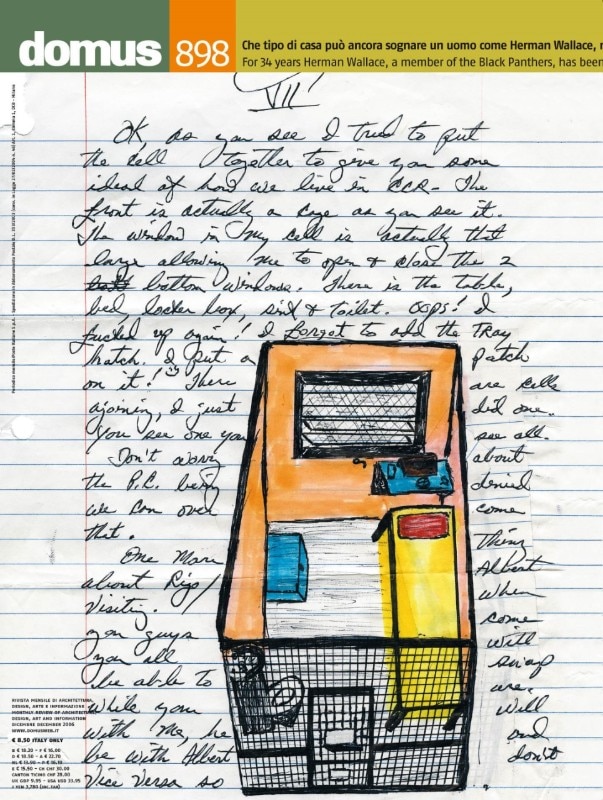 domus 898
Che tipo di casa può ancora sognare un uomo come Herman Wallace,
For 34 years Herman Wallace, a member of the Black Panthers, has been
VII
OK, as you see I tried to put
the cell together to give you some
ideal of how we live in CCR- The
front is actually a cage as you see it.
The window in my cell is actually that
large allowing me to open & close the 2
bottom windows. There is the table,
bed, locker box, sink & toilet. OOPS! I
fucked up again! I forgot to add the Tray
hatch. I put a patch
on it! There are cells
ajoining, I just did one.
You see one you see all.
Don't worry about
the P.C. being denied
we can over come
that.
One More Thing
about Rigo/ Albert
Visiting. When
you guys come
you all will
be able to swap
while you are. Will
with me, he and
be with Albert don't
Vice Versa so
RIVISTA MENSILE DI ARCHITETTURA,
DESIGN, ARTE E INFORMAZIONE
MONTHLY REVIEW OF ARCHITECTURE,
DESIGN, ART AND INFORMATION
DICEMBRE DECEMBER 2006
WWW.DOMUSWEB.IT
€ 8,50 ITALY ONLY